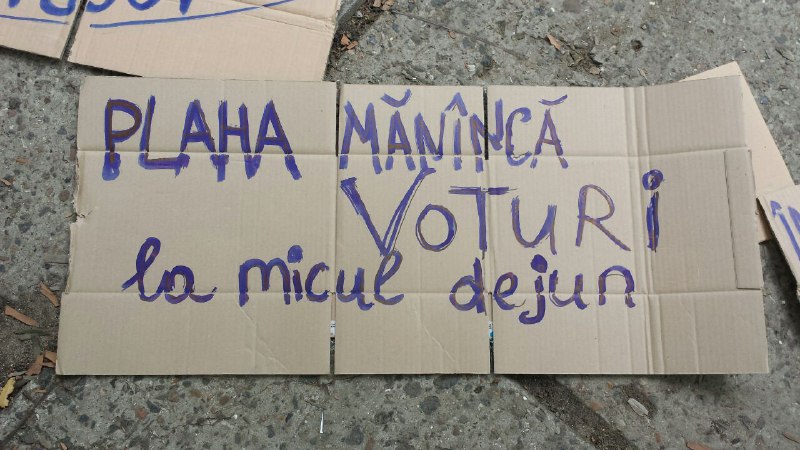 PLAHA MĂNÎNCĂ
VOTURI
la micul dejun